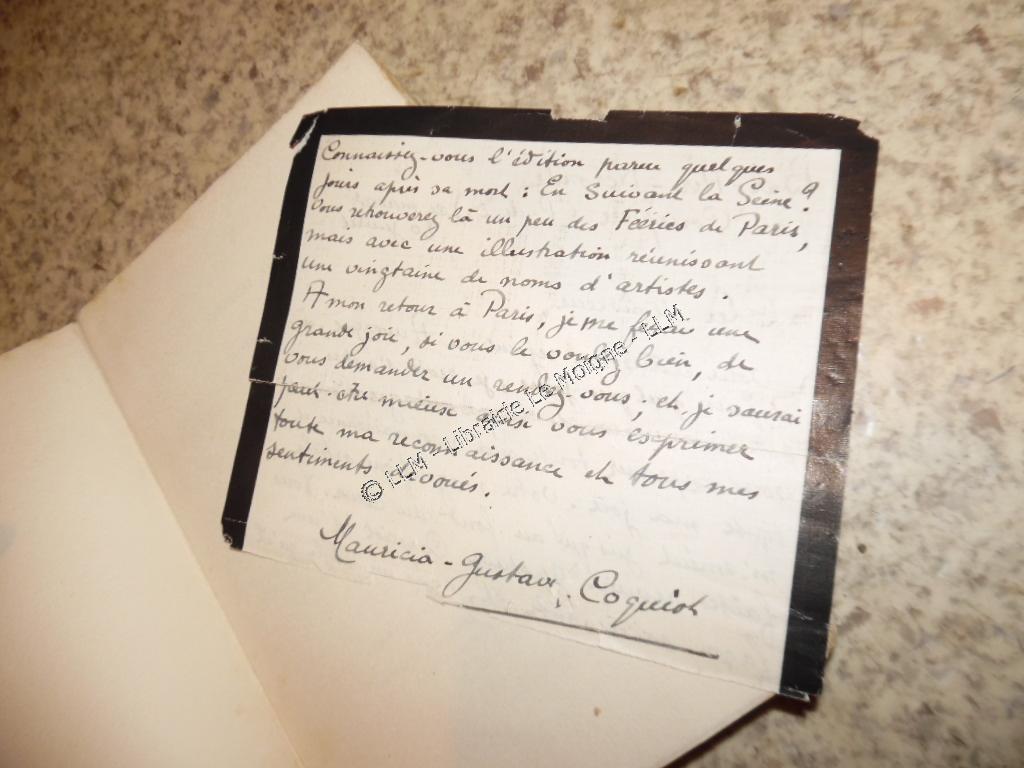 Connaissez-vous l'édition parue quelques
jours après sa mort : En Suivant la Seine ?
Vous retrouverez là un peu des Féeries de Paris,
mais avec une illustration réunissant
une vingtaine de noms d'artistes.
A mon retour à Paris, je me ferai une
grande joie, si vous le voulez bien, de
vous demander un rendez-vous, et je saurai
peut-être mieux ainsi vous exprimer
toute ma reconnaissance et tous mes
sentiments dévoués.
Mauricia-Gustave Coquiot
© LLM - Librairie Le Moigne - LLM